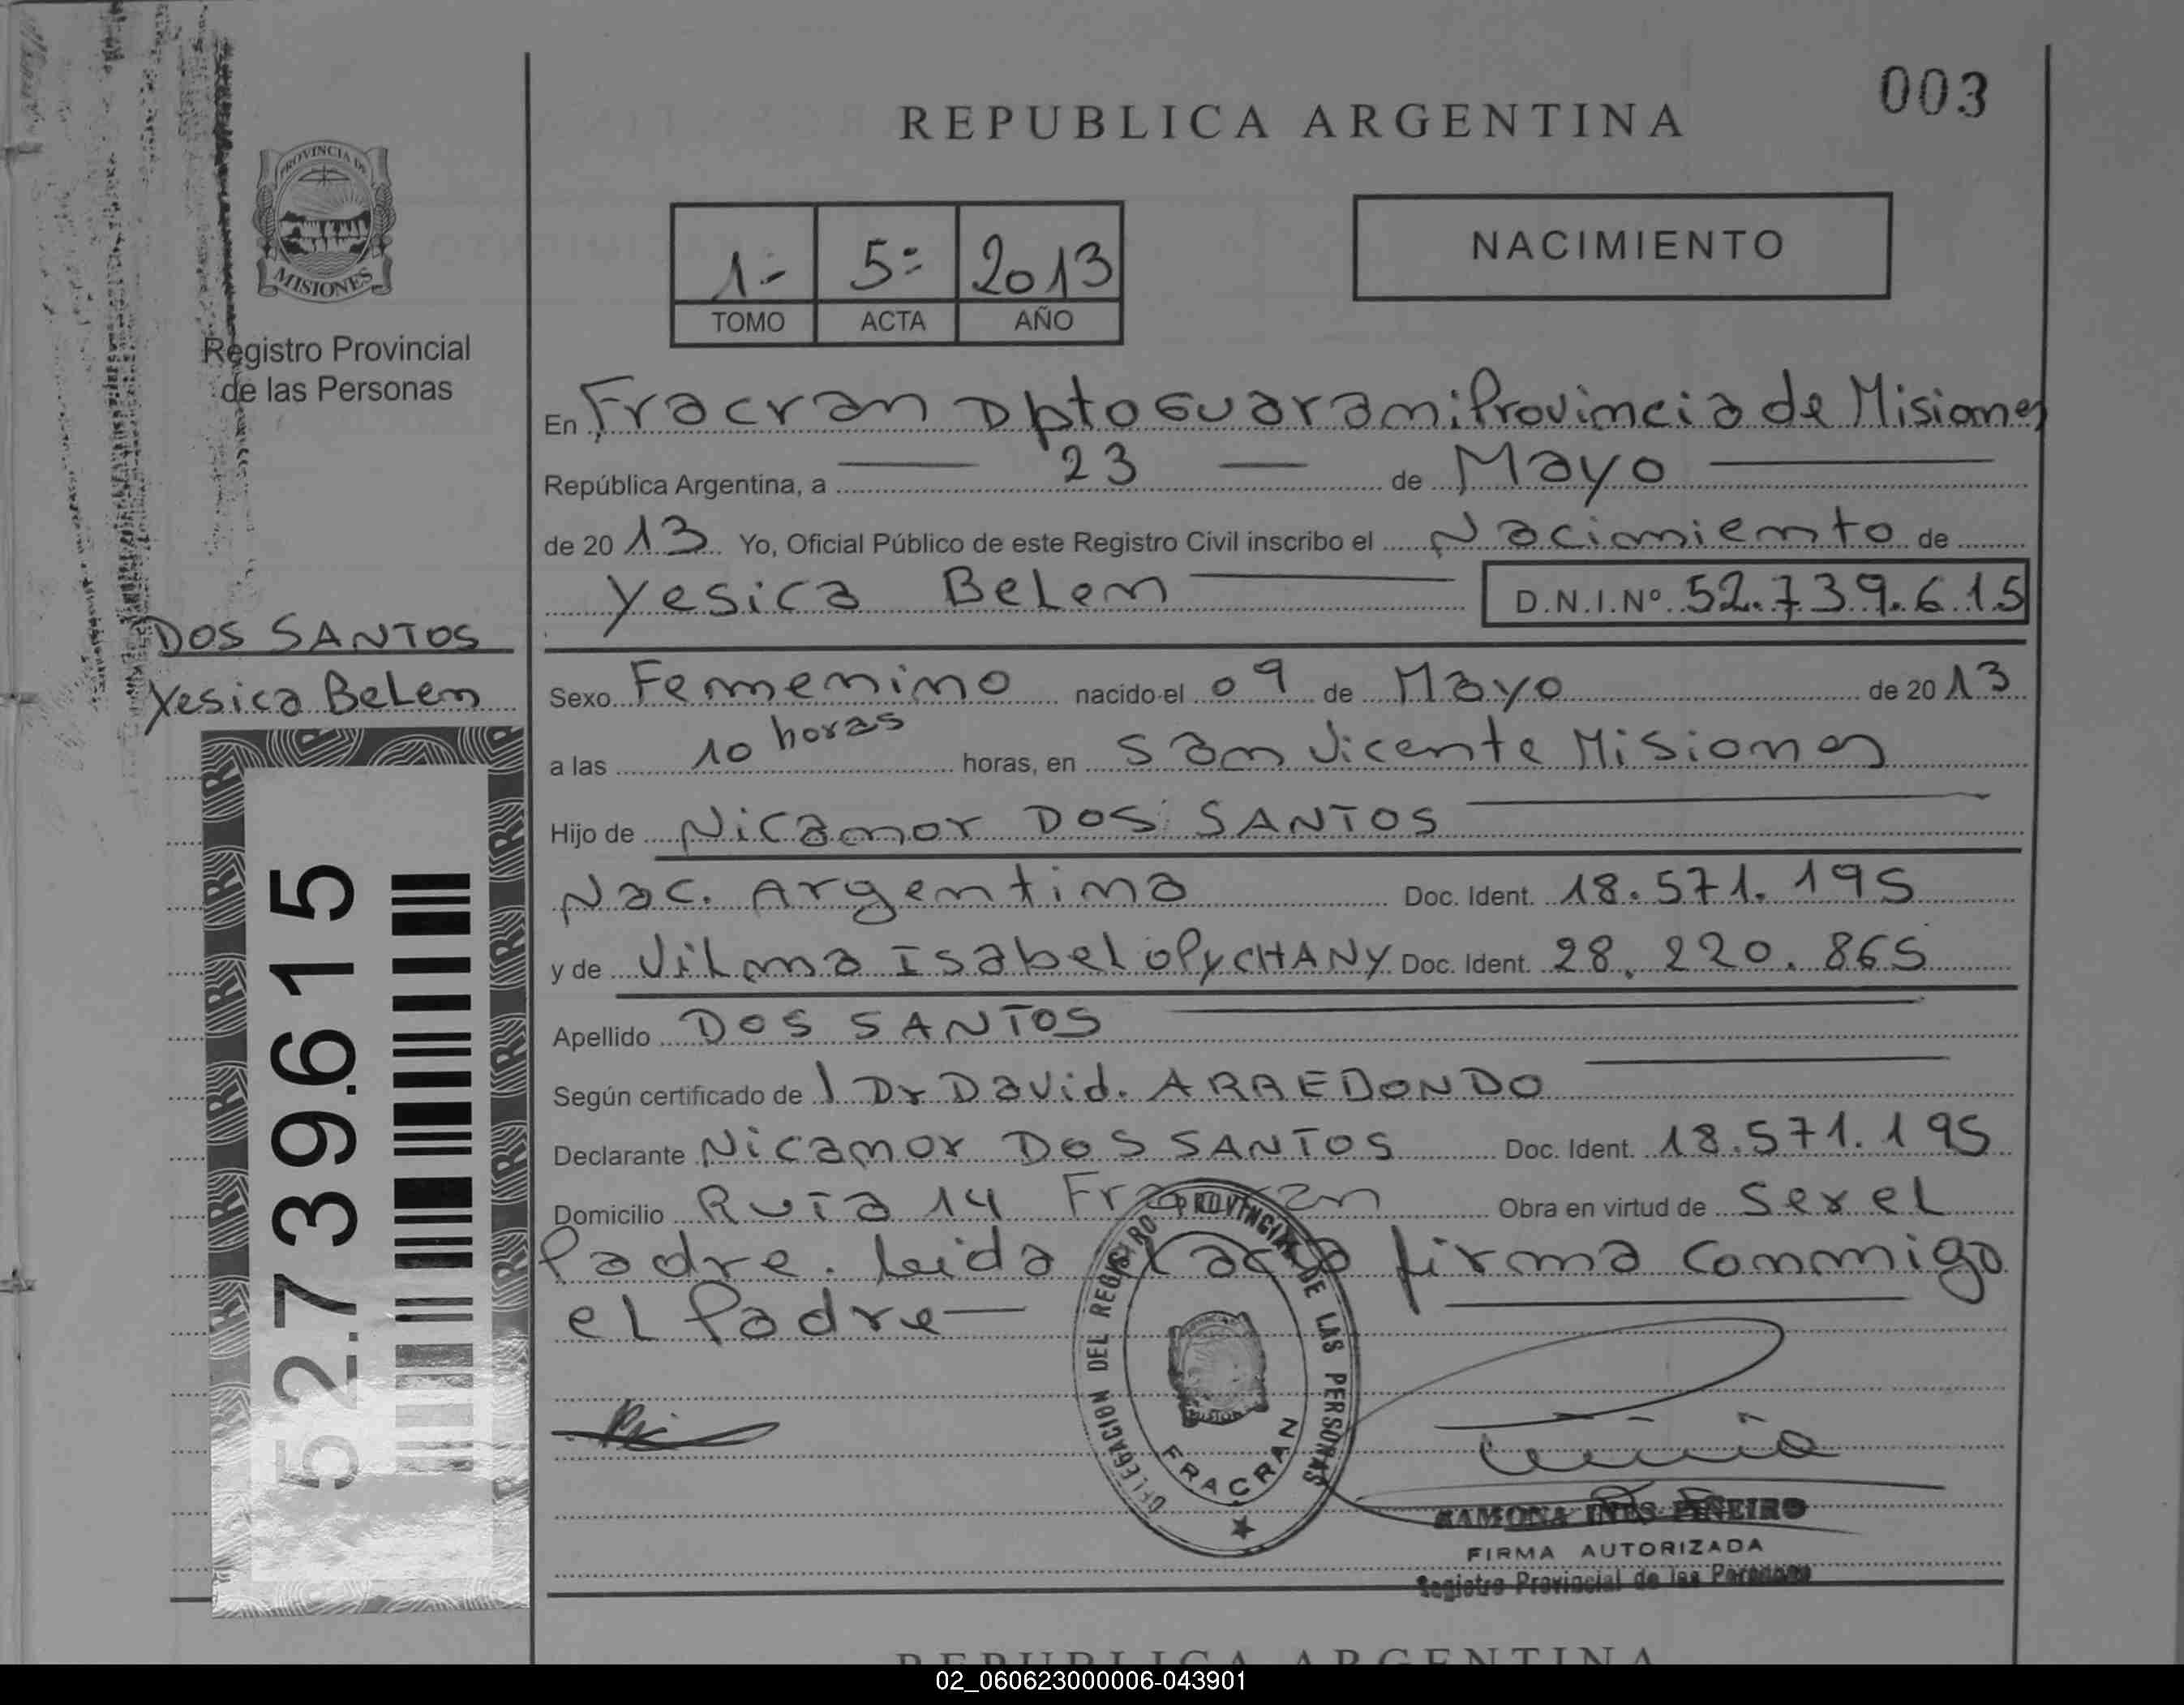 003
REPUBLICA ARGENTINA
PROVINCIA DE
MISIONES
Registro Provincial
de las Personas
1- 5= 2013
TOMO ACTA AÑO
NACIMIENTO
En Fracran Dpto Guarani Provincia de Misiones
República Argentina, a 23 de Mayo
de 2013 Yo, Oficial Público de este Registro Civil inscribo el Nacimiento de
Yesica Belen D.N.I.Nº 52.739.615
DOS SANTOS
Yesica Belen
Sexo Femenino nacido el 09 de Mayo de 2013
a las 10 horas horas, en San Vicente Misiones
Hijo de Nicanor DOS SANTOS
Nac. Argentina Doc. Ident. 18.571.195
y de Vilma Isabel OPyCHANY Doc. Ident. 28.220.865
Apellido DOS SANTOS
Según certificado de l Dr David. ARREDONDO
Declarante Nicanor DOS SANTOS Doc. Ident. 18.571.195
Domicilio Ruta 14 Fracran Obra en virtud de Ser el
Padre. Leida el acta firma conmigo
el Padre
52.739.615
DELEGACION DEL REGISTRO PROVINCIAL DE LAS PERSONAS
FRACRAN
RAMONA INES PIÑEIRO
FIRMA AUTORIZADA
Registro Provincial de las Personas
REPUBLICA ARGENTINA
02_060623000006-043901